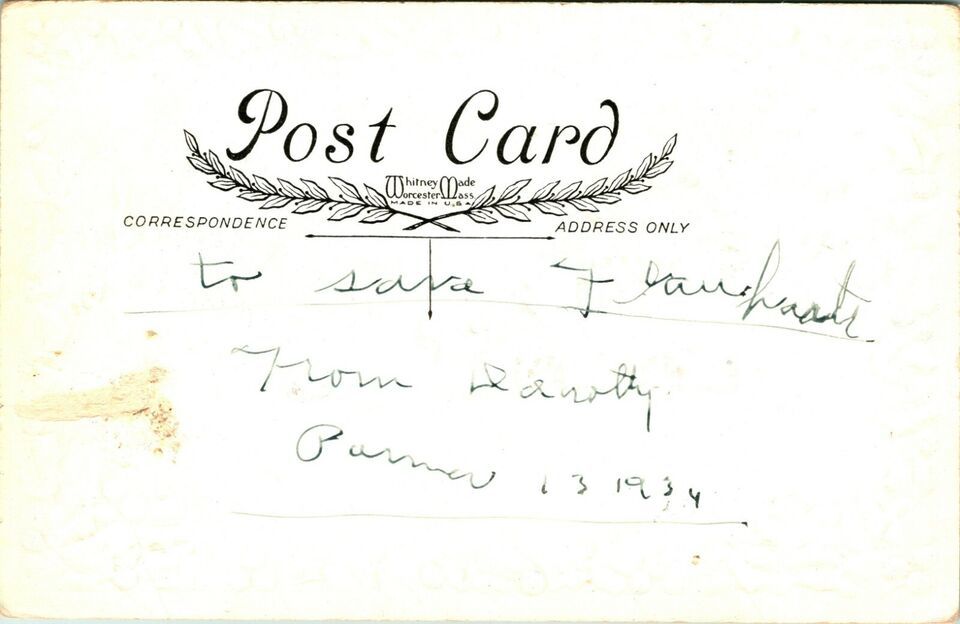 Post Card
Whitney Made
Worcester Mass
MADE IN U.S.A
CORRESPONDENCE ADDRESS ONLY
to sara
From Dorothy
13 1934